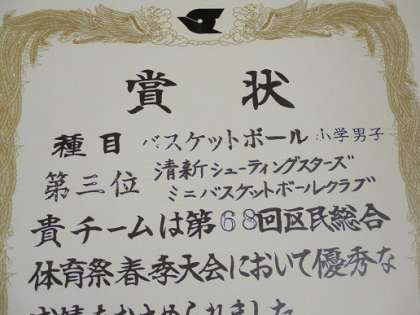 賞状
種目 バスケットボール 小学男子
第三位 清新シューティングスターズ
ミニバスケットボールクラブ
貴チームは第68回区民総合
体育祭春季大会において優秀な